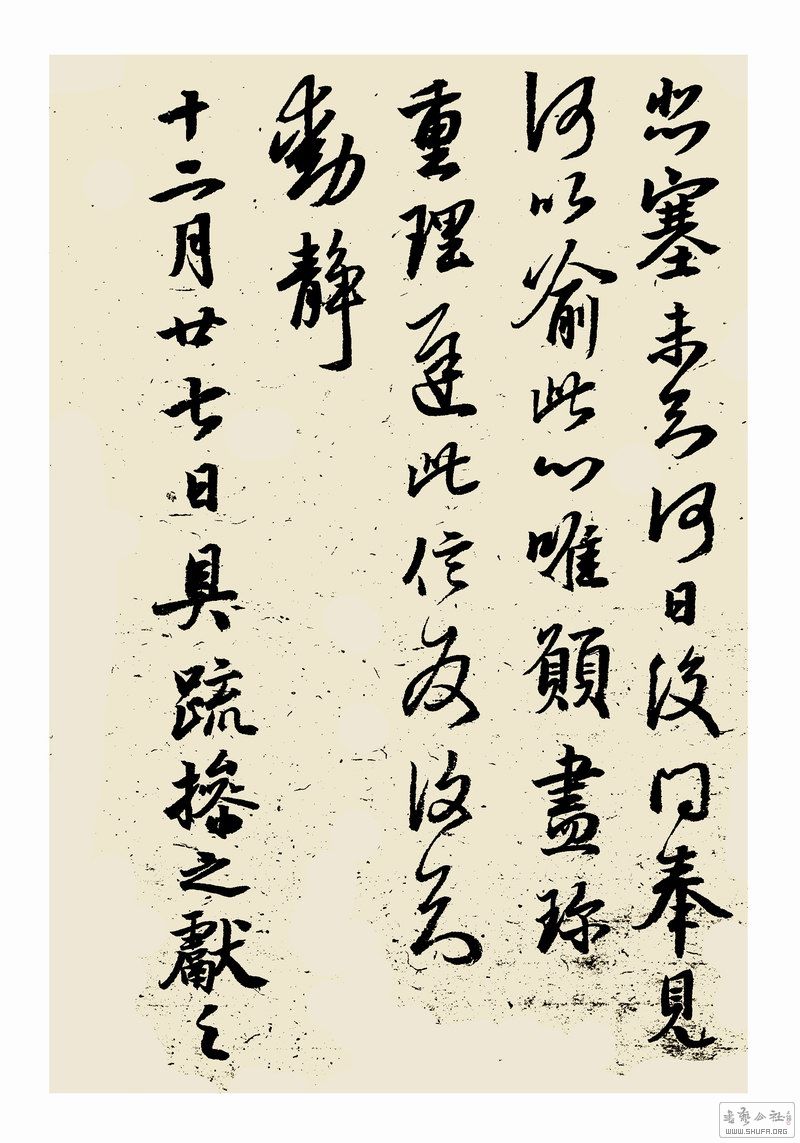 悲塞未知何日復得奉見
何以喻此心唯願盡珍
重理遲此信反復知
動靜
十二月廿七日具疏操之獻之
書藝公社
WWW.SHUFA.ORG